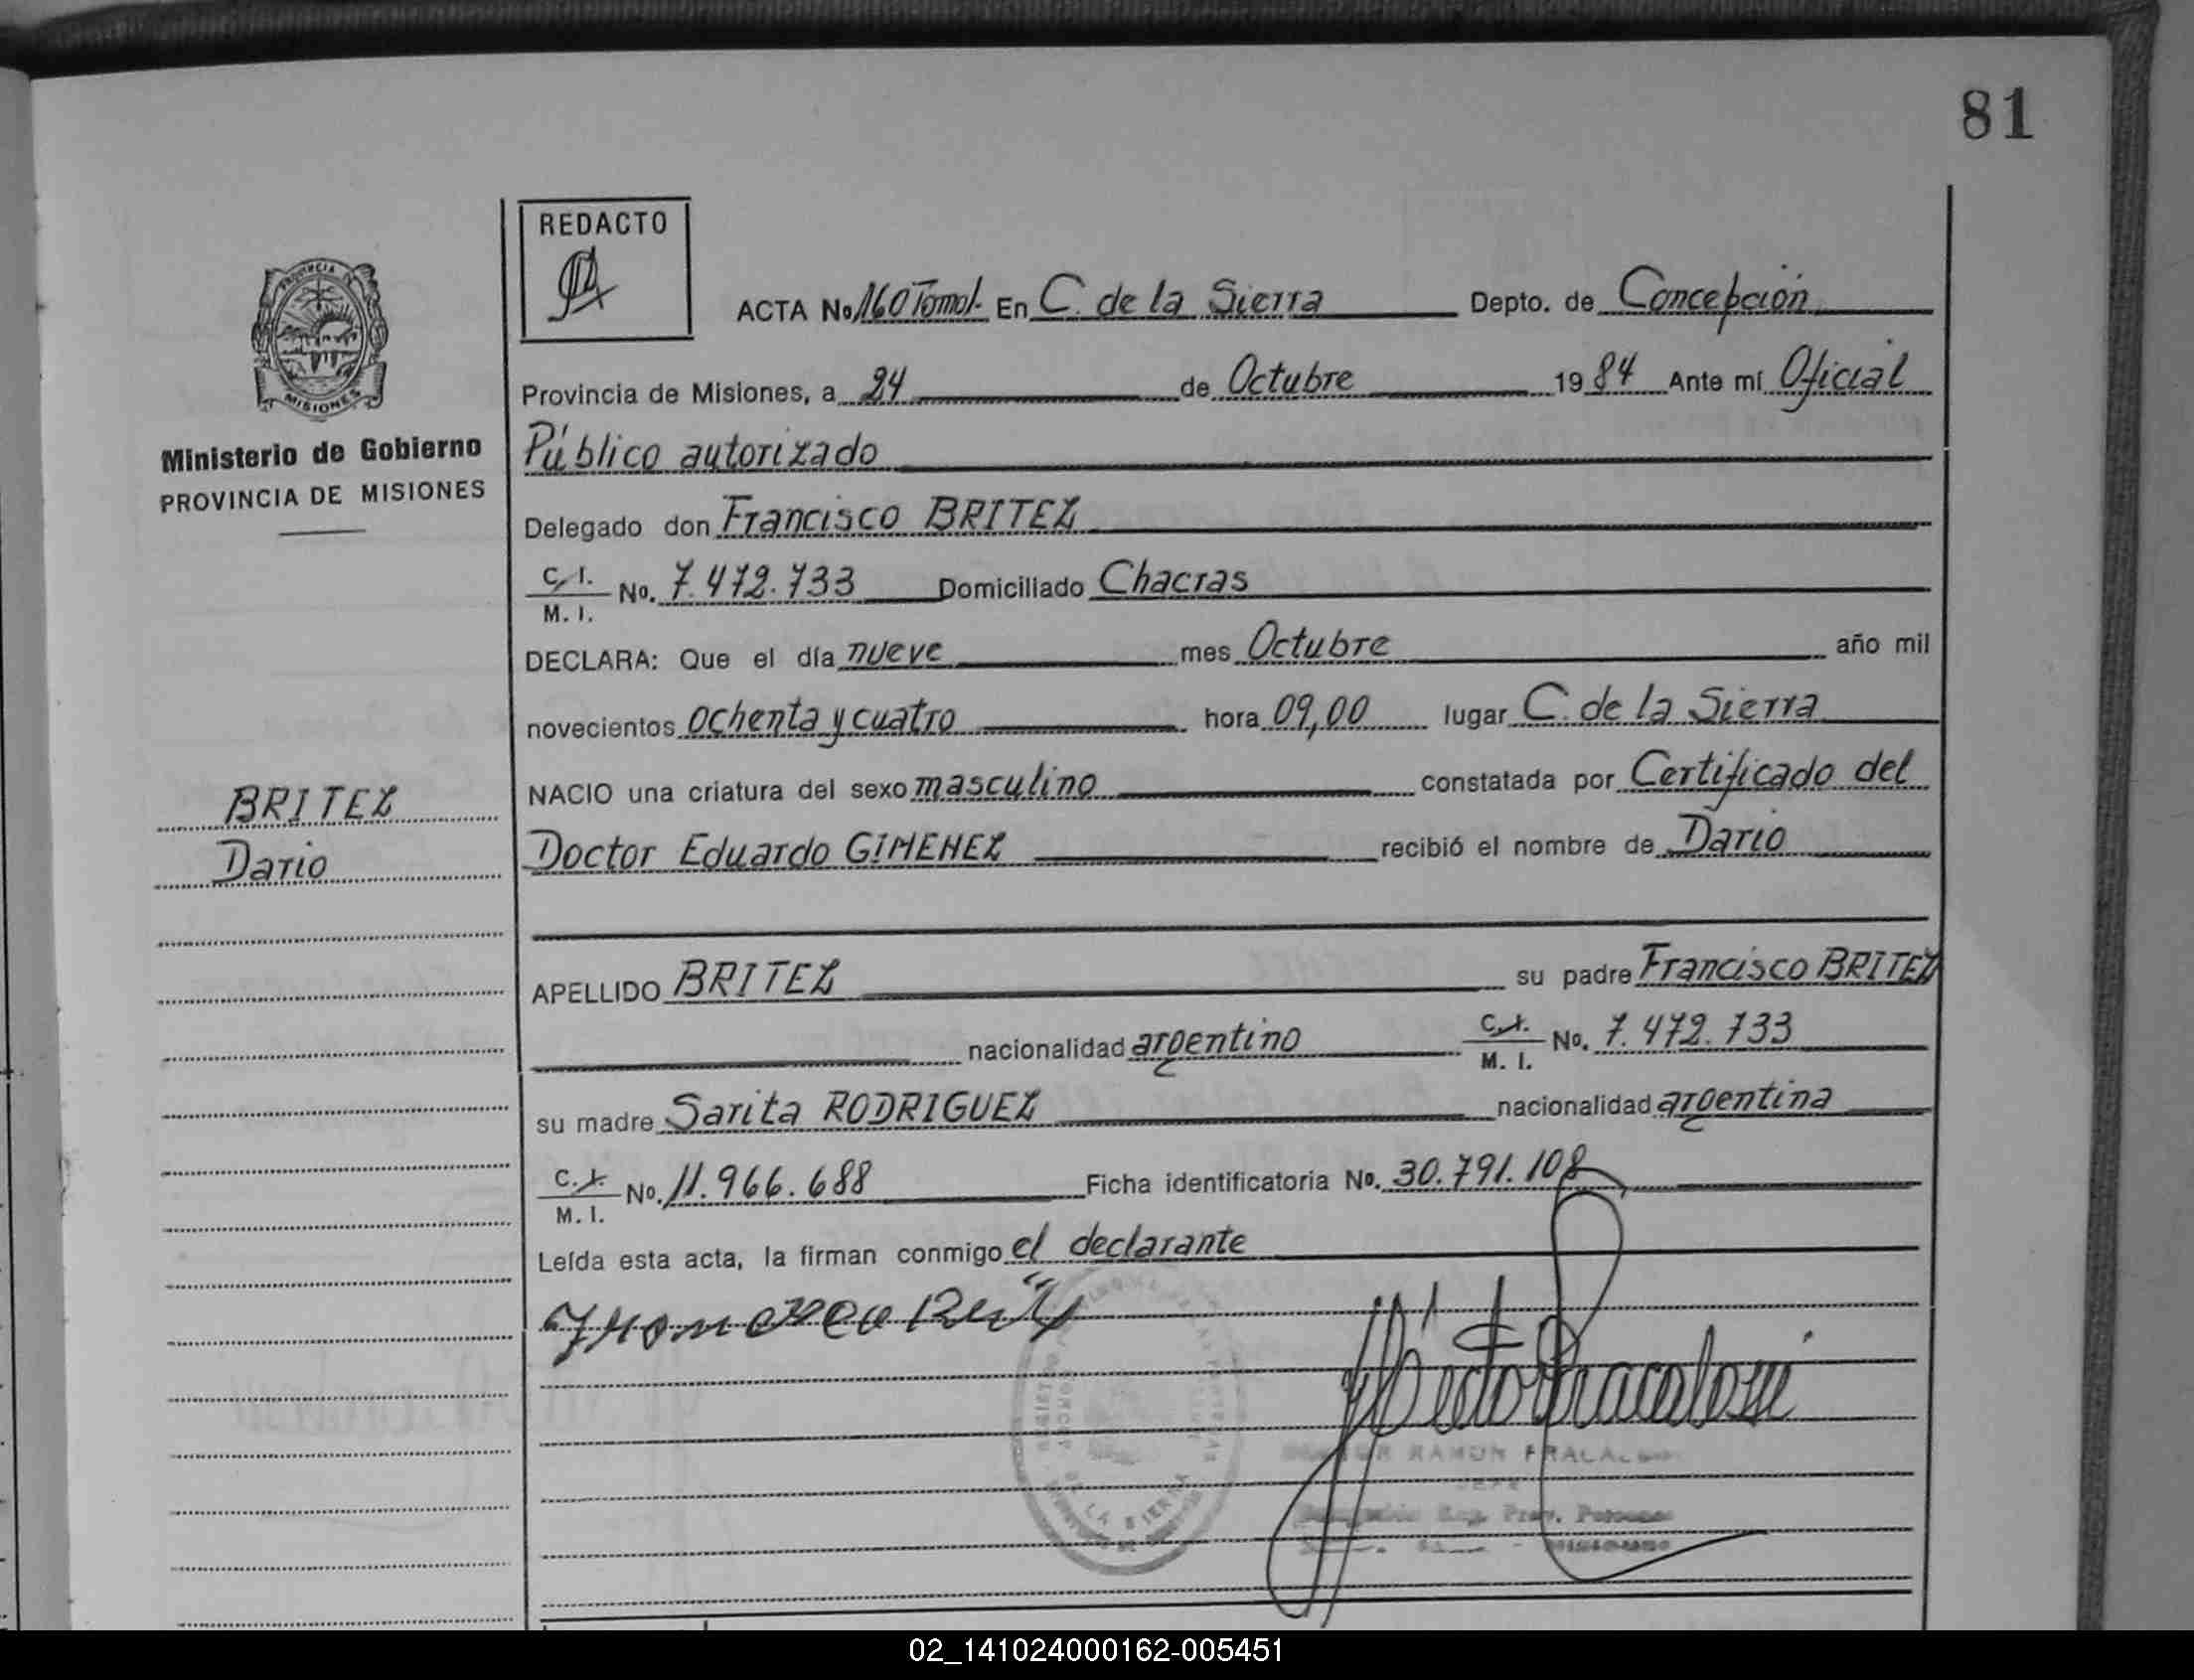 81
REDACTO
ACTA No. 160 Tomo I - En C. de la Sierra Depto. de Concepción
Provincia de Misiones, a 24 de Octubre 1984 Ante mí Oficial
Público autorizado
Delegado don Francisco BRITEZ
C. I. M. I. No. 7.472.733 Domiciliado Chacras
DECLARA: Que el día nueve mes Octubre año mil
novecientos ochenta y cuatro hora 09,00 lugar C. de la Sierra
NACIO una criatura del sexo masculino constatada por Certificado del
Doctor Eduardo GIMENEZ recibió el nombre de Dario
APELLIDO BRITEZ su padre Francisco BRITEZ
nacionalidad argentino C. I. M. I. No. 7.472.733
su madre Sarita RODRIGUEZ nacionalidad argentina
C. I. M. I. No. 11.966.688 Ficha identificatoria No. 30.791.108
Leída esta acta, la firman conmigo el declarante
PROVINCIA DE
MISIONES
Ministerio de Gobierno
PROVINCIA DE MISIONES
BRITEZ
Dario
RAMON
DE LA SIERRA
02_141024000162-005451